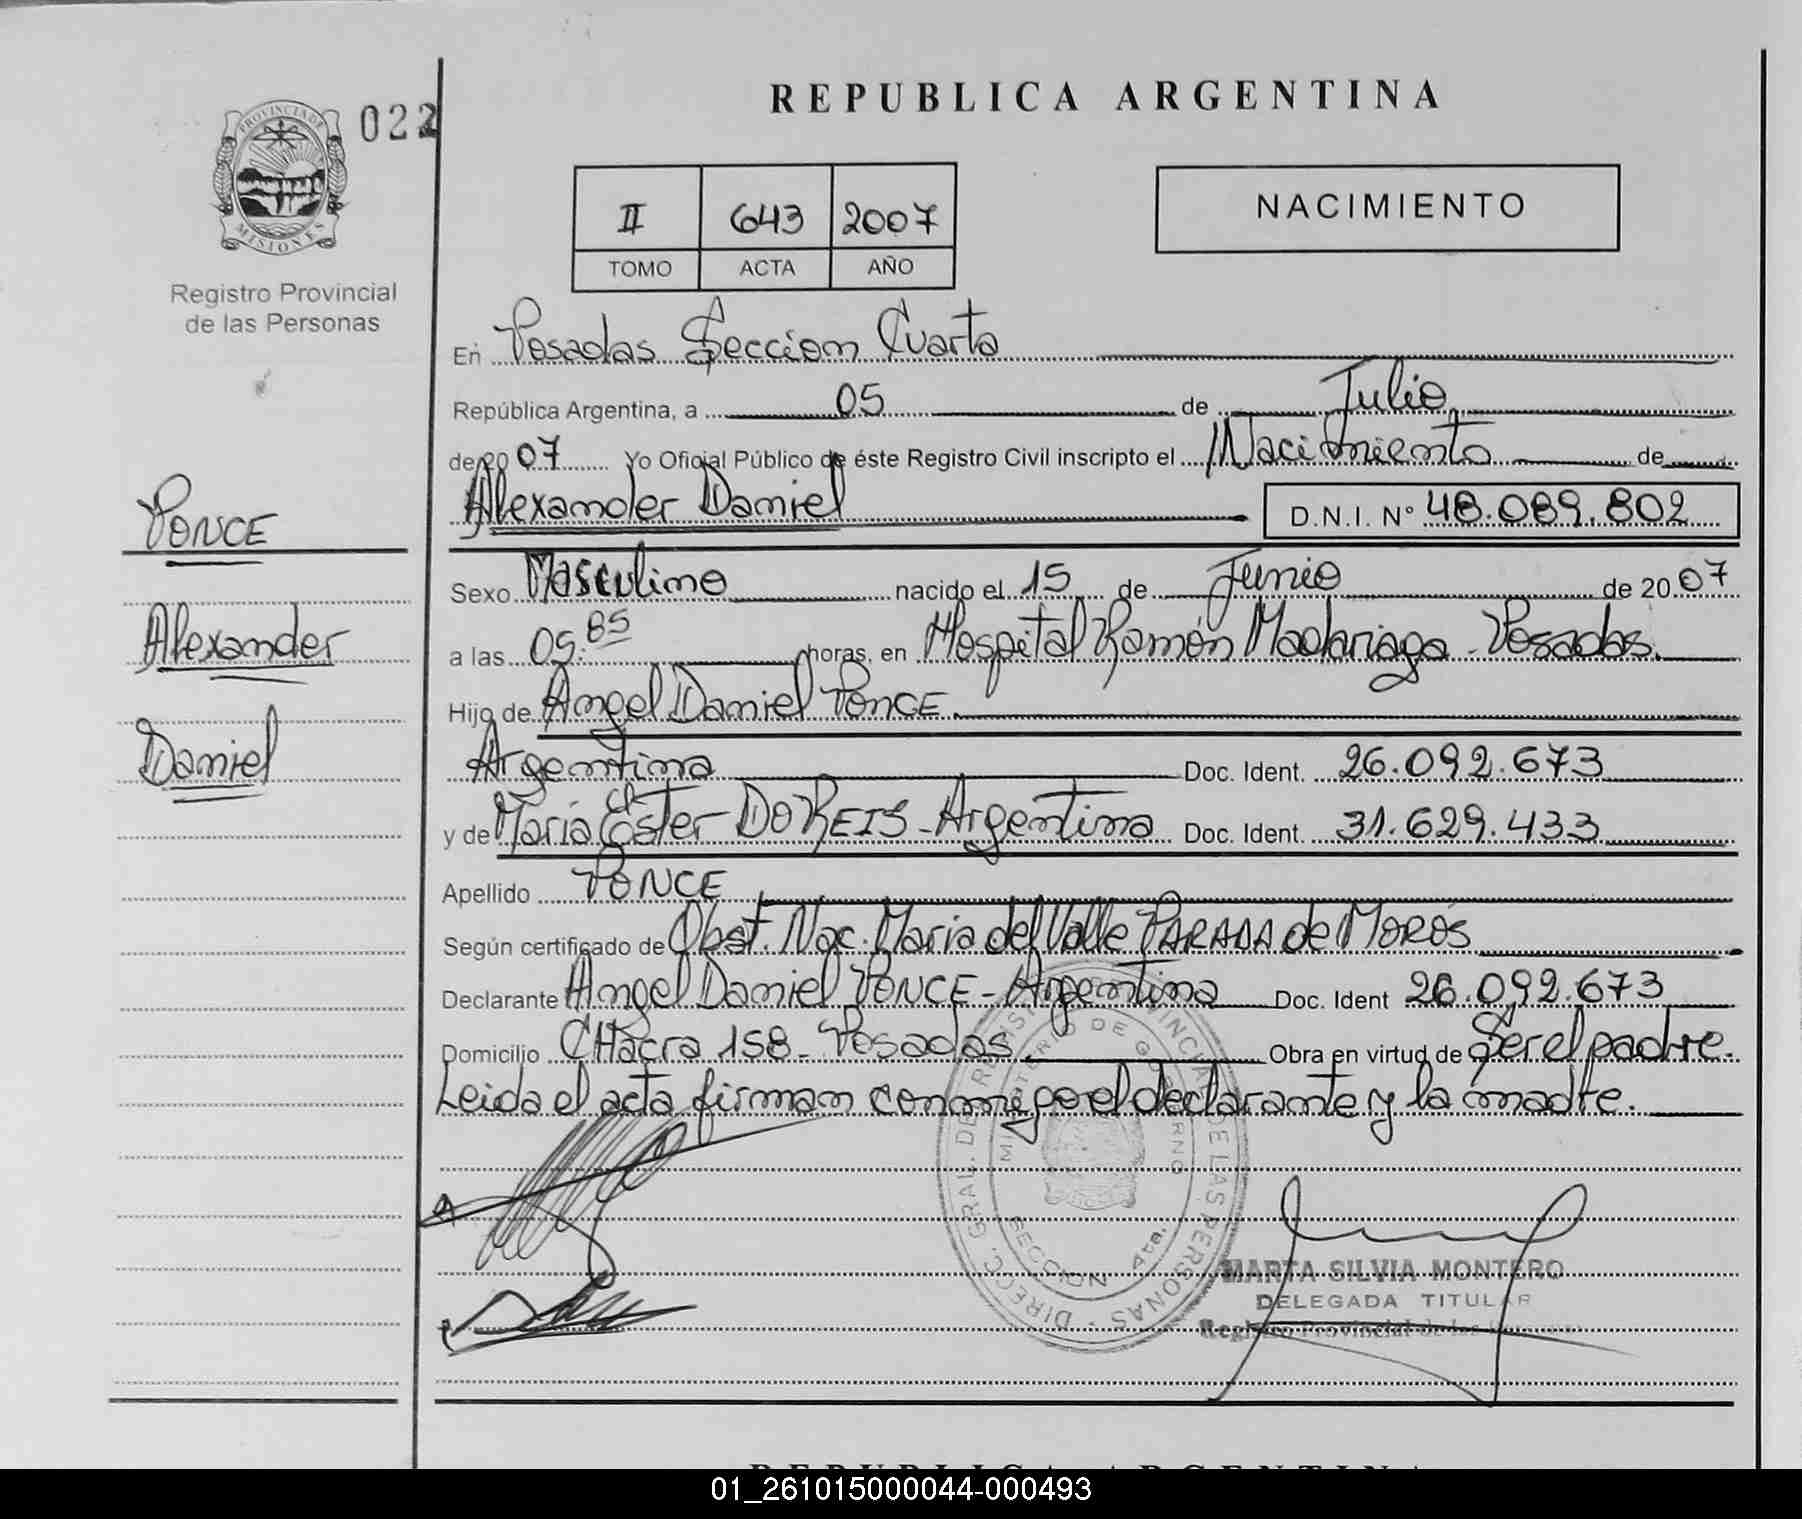 PROVINCIA DE
MISIONES
022
Registro Provincial
de las Personas
PONCE
Alexander
Daniel
REPUBLICA ARGENTINA
II 643 2007
TOMO ACTA AÑO
NACIMIENTO
En Posadas Seccion Cuarta
República Argentina, a 05 de Julio
de 20 07 Yo Oficial Público de éste Registro Civil inscripto el Nacimiento de
Alexander Daniel D.N.I. Nº 48.089.802
Sexo Masculino nacido el 15 de Junio de 20 07
a las 05: horas, en Hospital Ramón Madariaga - Posadas.
Hijo de Angel Daniel PONCE.
Argentina Doc. Ident. 26.092.673
y de María Ester DO REIS - Argentina Doc. Ident. 31.629.433
Apellido PONCE
Según certificado de Obst. Nac. Maria del Valle PARADA de MOROS
Declarante Angel Daniel PONCE - Argentina Doc. Ident 26.092.673
Domicilio CHacra 158 - Posadas. Obra en virtud de Ser el padre.
Leida el acta firman conmigo el declarante y la madre.
DIRECC. GRAL. DE REGISTRO PROVINCIAL DE LAS PERSONAS -
MINISTERIO DE GOBIERNO
SECCION 4ta.
MARTA SILVIA MONTERO
DELEGADA TITULAR
Registro Provincial de las Personas
REPUBLICA ARGENTINA
01_261015000044-000493